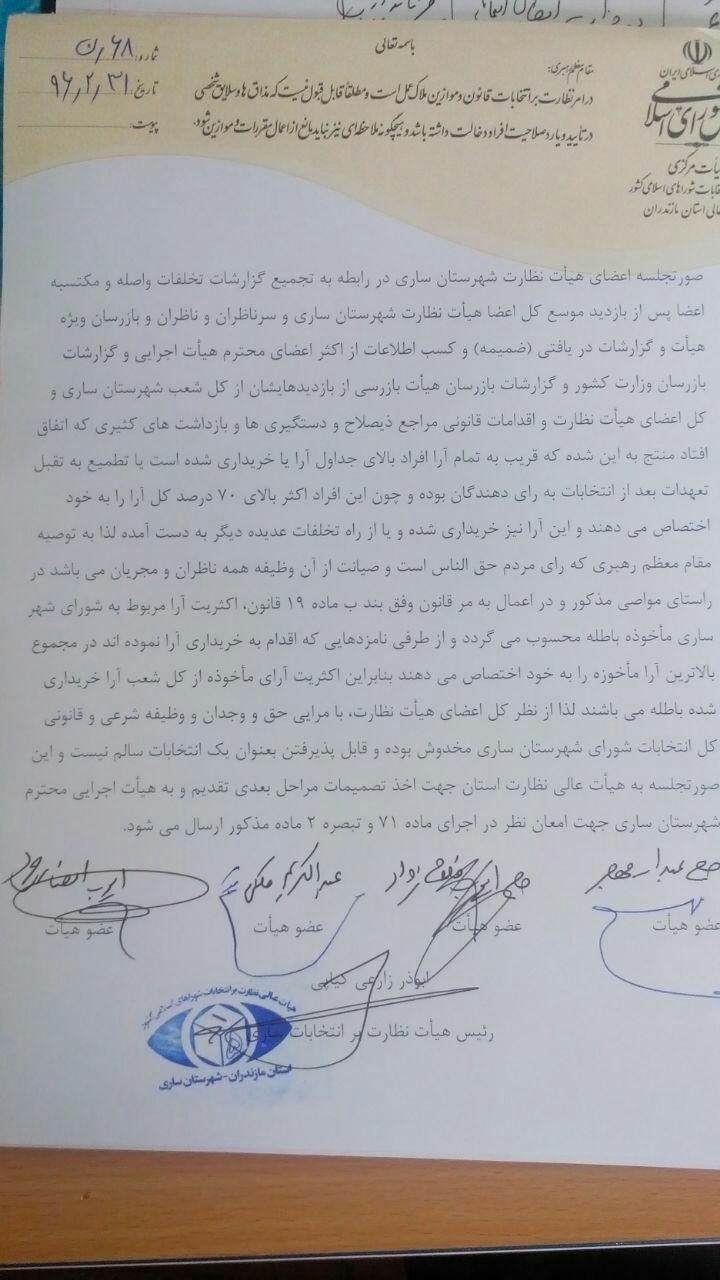 باسمه تعالی
شماره: ۶۸/ن
تاریخ: ۹۶,۲,۳۱
پیوست:
مقام معظم رهبری:
در امر نظارت بر انتخابات قانون و موازین ملاک عمل است و مطلقاً قابل قبول نیست که مذاق ها و سلایق شخصی
در تأیید و یا رد صلاحیت افراد دخالت داشته باشد و هیچگونه ملاحظه‌ای نیز نباید مانع از اعمال مقررات و موازین شود.
ی اسلامی ایران
ورای اسلامی
یأت مرکزی
خابات شوراهای اسلامی کشور
عالی استان مازندران
صورتجلسه اعضای هیأت نظارت شهرستان ساری در رابطه به تجمیع گزارشات تخلفات واصله و مکتسبه
اعضا پس از بازدید موسع کل اعضا هیأت نظارت شهرستان ساری و سرناظران و ناظران و بازرسان ویژه
هیأت و گزارشات در یافتی (ضمیمه) و کسب اطلاعات از اکثر اعضای محترم هیأت اجرایی و گزارشات
بازرسان وزارت کشور و گزارشات بازرسان هیأت بازرسی از بازدیدهایشان از کل شعب شهرستان ساری و
کل اعضای هیأت نظارت و اقدامات قانونی مراجع ذیصلاح و دستگیری ها و بازداشت های کثیری که اتفاق
افتاد منتج به این شده که قریب به تمام آرا افراد بالای جداول آرا یا خریداری شده است یا تطمیع به تقبل
تعهدات بعد از انتخابات به رای دهندگان بوده و چون این افراد اکثر بالای ۷۰ درصد کل آرا را به خود
اختصاص می دهند و این آرا نیز خریداری شده و یا از راه تخلفات عدیده دیگر به دست آمده لذا به توصیه
مقام معظم رهبری که رای مردم حق الناس است و صیانت از آن وظیفه همه ناظران و مجریان می باشد در
راستای مواصی مذکور و در اعمال به مر قانون وفق بند ب ماده ۱۹ قانون، اکثریت آرا مربوط به شورای شهر
ساری مأخوذه باطله محسوب می گردد و از طرفی نامزدهایی که اقدام به خریداری آرا نموده اند در مجموع
بالاترین آرا مأخوزه را به خود اختصاص می دهند بنابراین اکثریت آرای مأخوذه از کل شعب آرا خریداری
شده باطله می باشند لذا از نظر کل اعضای هیأت نظارت، با مرایی حق و وجدان و وظیفه شرعی و قانونی
کل انتخابات شورای شهرستان ساری مخدوش بوده و قابل پذیرفتن بعنوان یک انتخابات سالم نیست و این
صورتجلسه به هیأت عالی نظارت استان جهت اخذ تصمیمات مراحل بعدی تقدیم و به هیأت اجرایی محترم
شهرستان ساری جهت امعان نظر در اجرای ماده ۷۱ و تبصره ۲ ماده مذکور ارسال می شود.
عبدالکریم ملکی
عضو هیأت
عضو هیأت
عضو هیأت
عضو هیأت
ابوذر زارعی کیاپی
رئیس هیأت نظارت بر انتخابات ساری
هیأت عالی نظارت بر انتخابات شوراهای اسلامی کشور
استان مازندران-شهرستان ساری